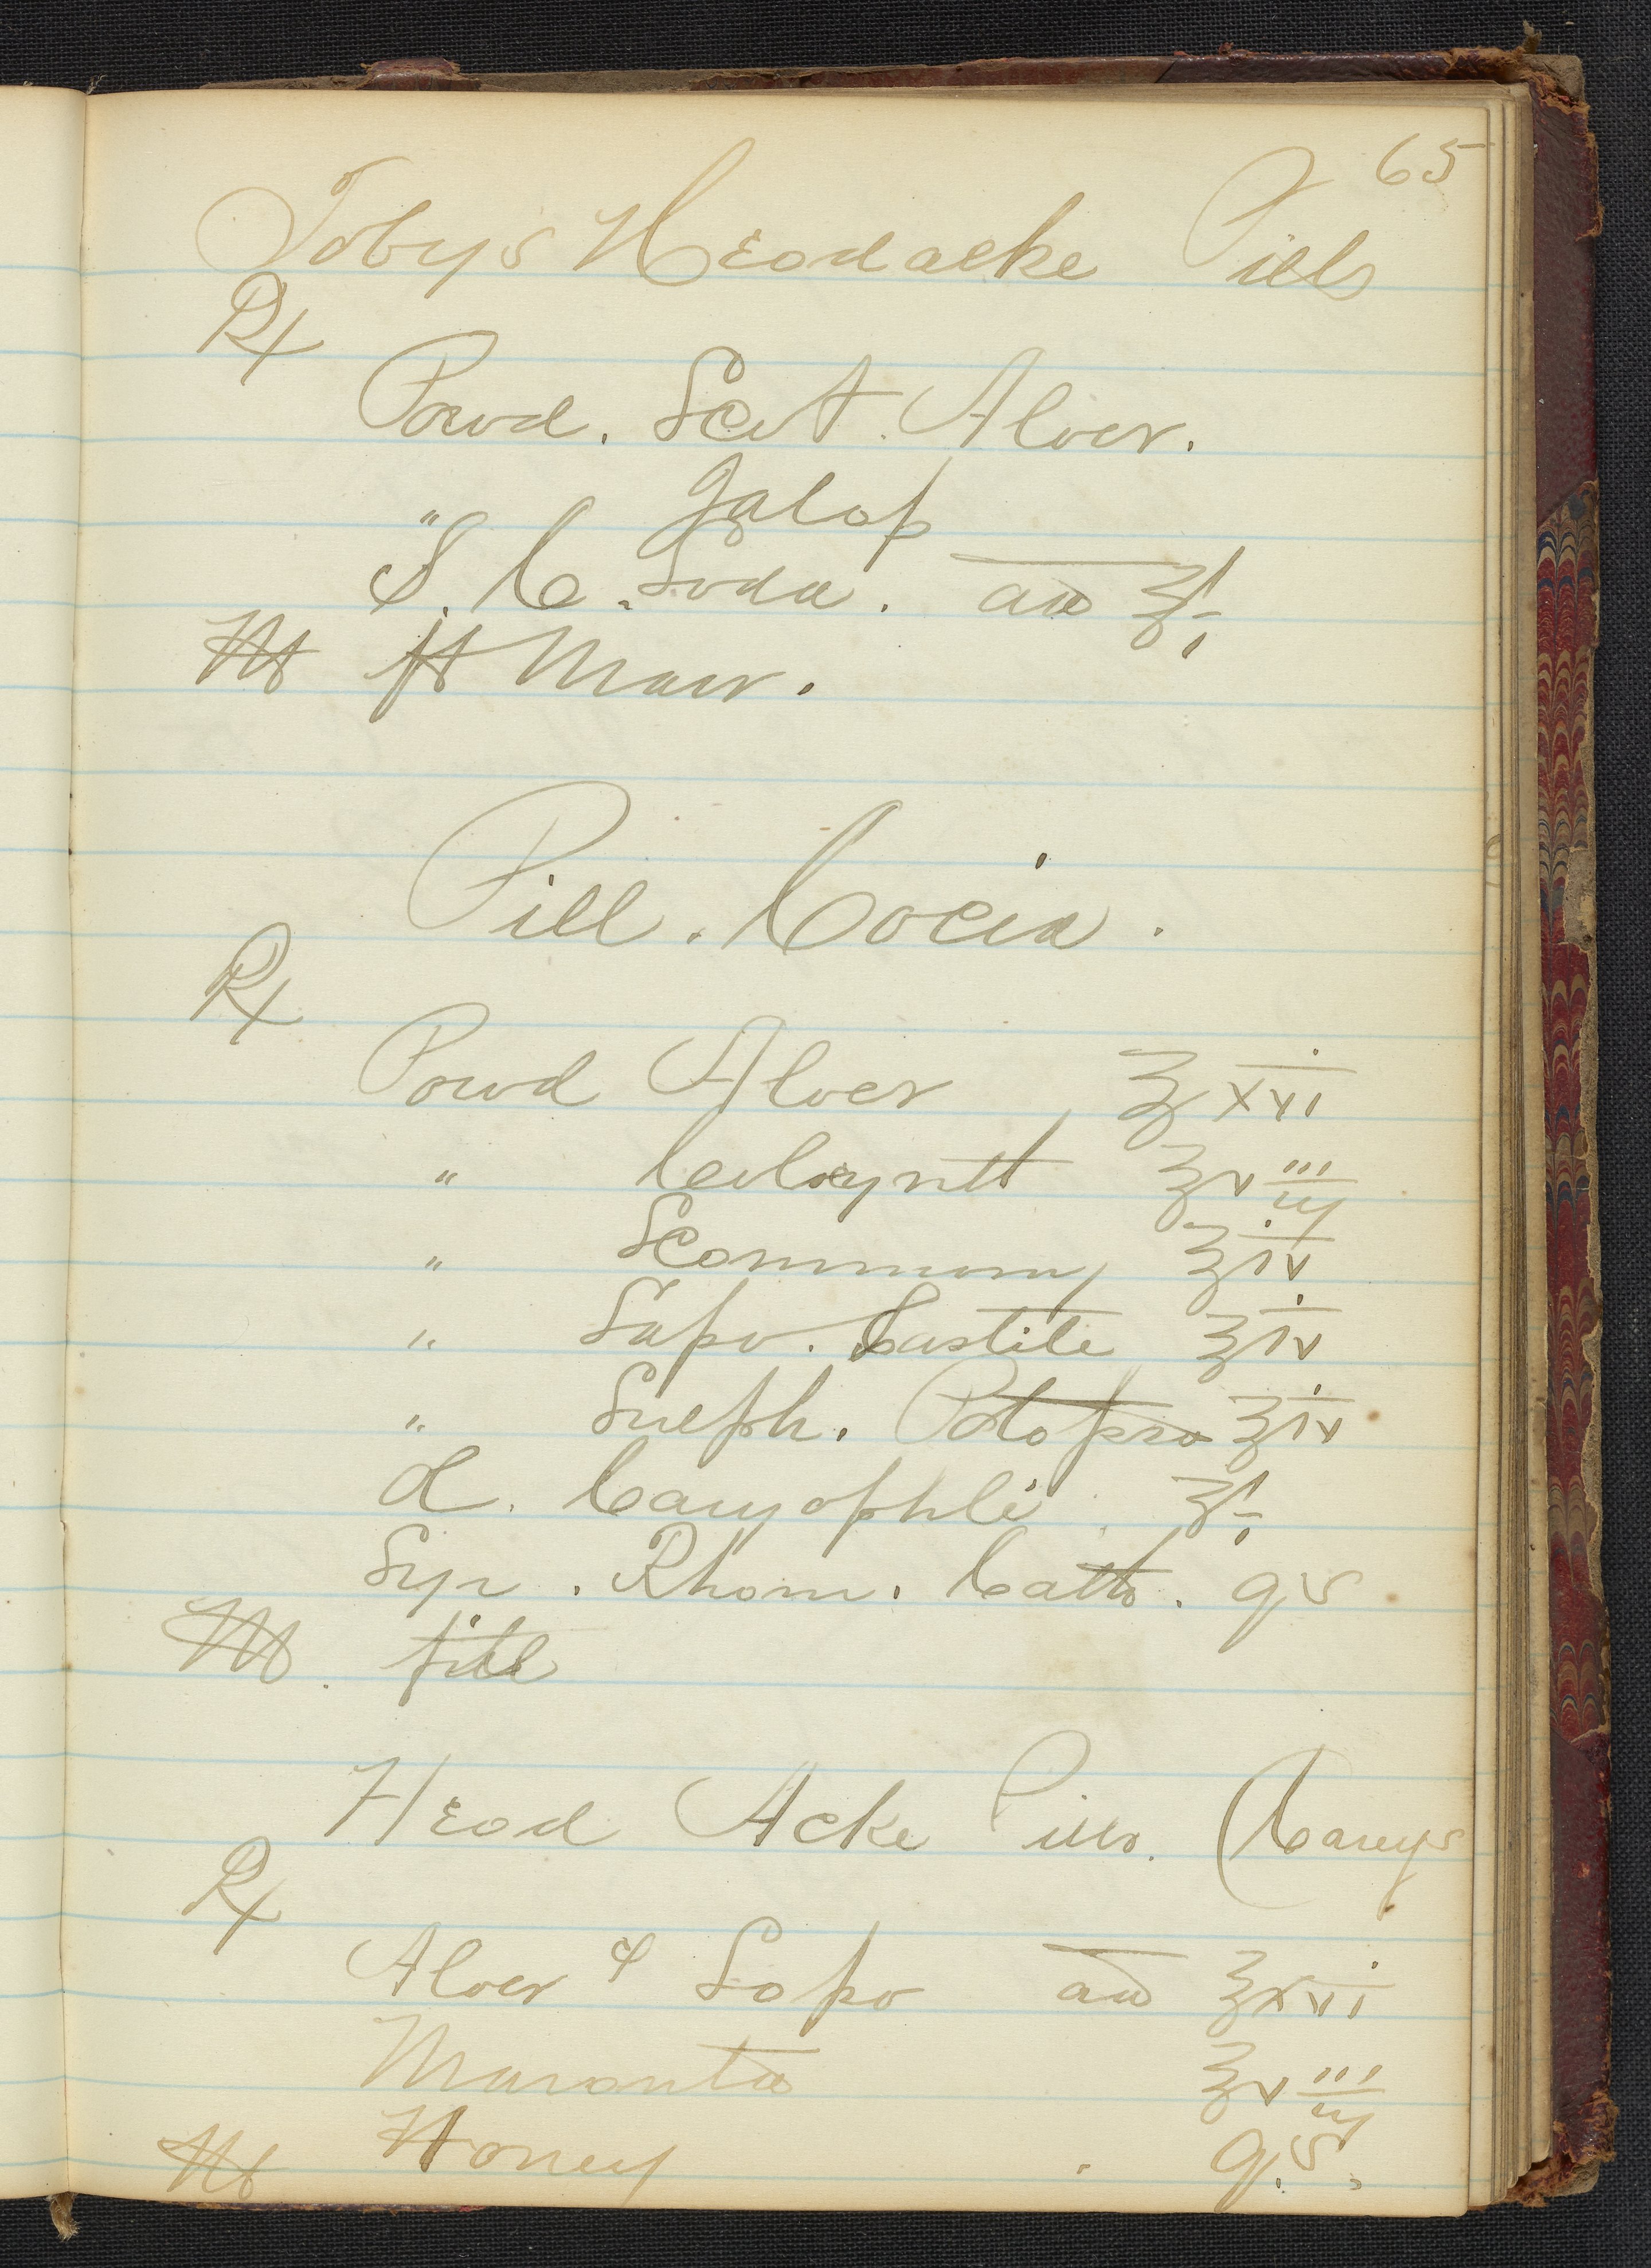 65
Tobys Headache Pills
Rx
Powd. Scot. Aloes.
" Jalap
S. C. Soda. aa ℥i
M ft Mass.
Pill. Cocia.
Rx
Powd Aloes ℥xvi
" Colocynth ℥viij
" Scammony ℥iv
" Sapo. Castile ℥iv
" Sulph. Potassa ℥iv
Ol. Caryophli ℥i
Syr. Rham. Catto. qs
M. pill
Head Ache Pills. (Careys
Rx
Aloes & Sapo aa ℥xvi
Maranta ℥viij
M Honey q.s.